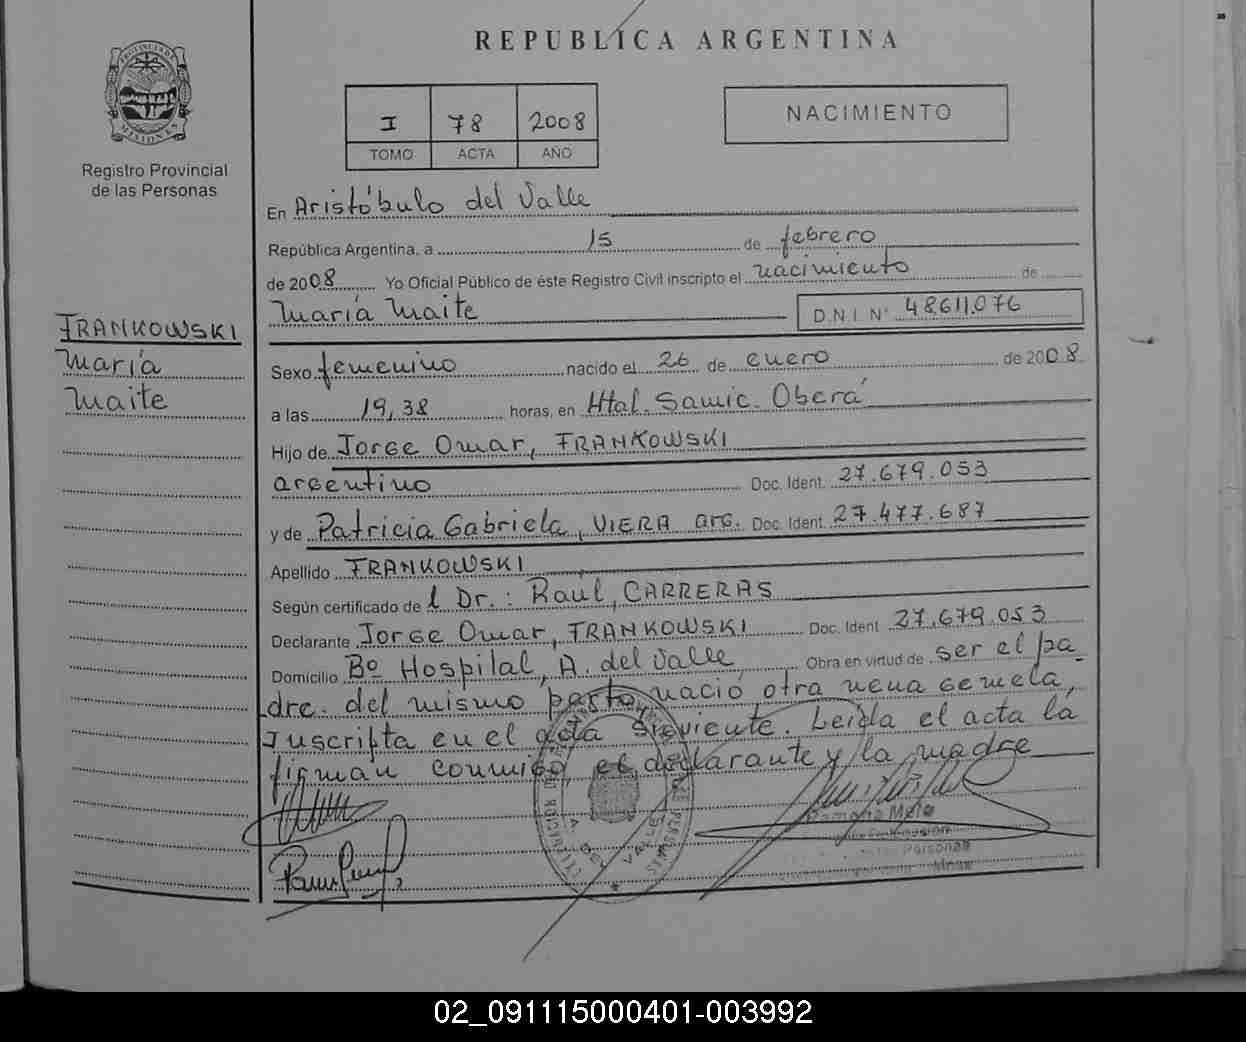 PROVINCIA DE
MISIONES
Registro Provincial
de las Personas
REPUBLICA ARGENTINA
I 78 2008
TOMO ACTA AÑO
NACIMIENTO
En Aristóbulo del Valle
República Argentina, a 15 de febrero
de 2008 Yo Oficial Público de éste Registro Civil inscripto el nacimiento de
María Maite D.N.I. Nº 48.611.076
FRANKOWSKI
María
Maite
Sexo femenino nacido el 26 de enero de 2008
a las 19,38 horas, en Htal. Samic. Oberá
Hijo de Jorge Omar, FRANKOWSKI
argentino Doc. Ident. 27.679.053
y de Patricia Gabriela, VIERA arg. Doc. Ident. 27.477.687
Apellido FRANKOWSKI
Según certificado de l Dr.: Raúl, CARRERAS
Declarante Jorge Omar, FRANKOWSKI Doc. Ident 27.679.053
Domicilio Bº Hospital, A. del Valle Obra en virtud de ser el pa
dre. del mismo parto, nació otra nena gemela,
Inscripta en el acta siguiente. Leída el acta la
firman conmigo, el declarante y la madre
A. DEL VALLE
Ramona Melo
Personas
Mnes
02_091115000401-003992